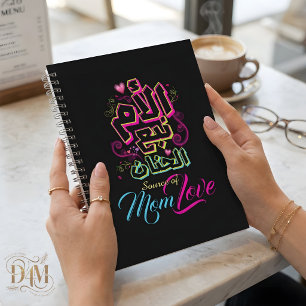 MENU
الأم
نبع
الحنان
Source of
Mom Love
D4M